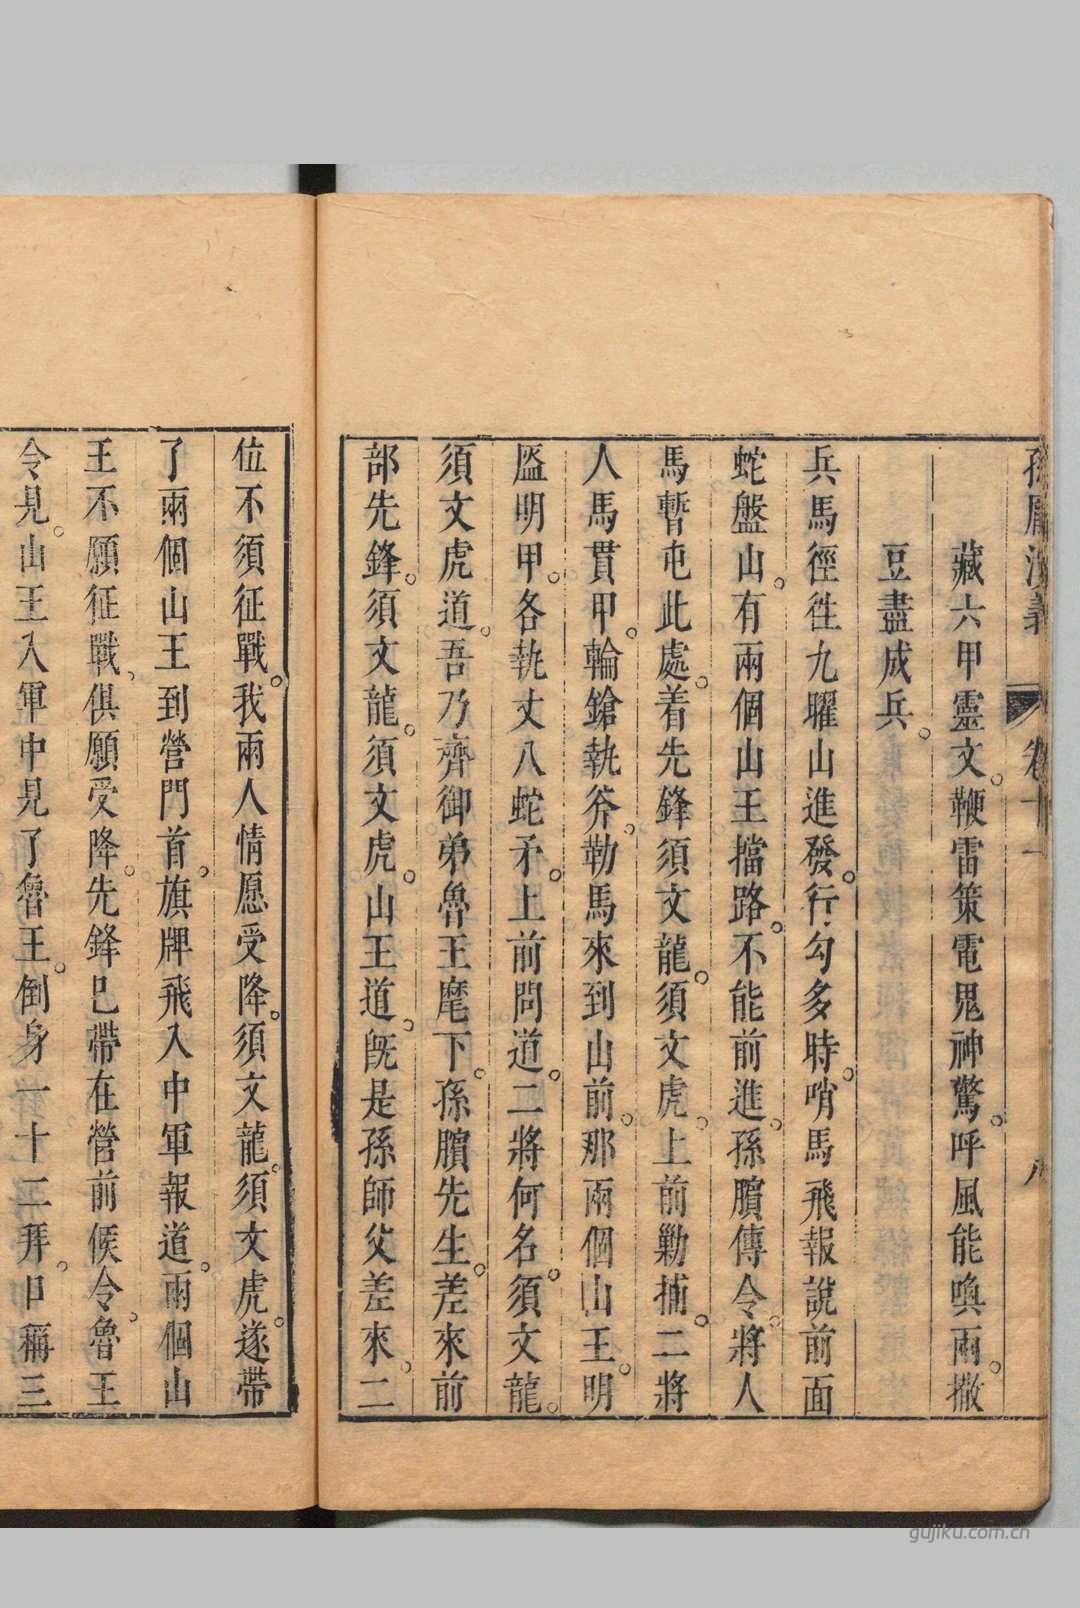 孫龐演義 卷十一 八
藏六甲靈文。鞭雷策電鬼神驚。呼風能喚雨。撒
豆盡成兵。
兵馬徑徃九曜山進發。行勾多時。哨馬飛報說前面
蛇盤山。有兩個山王擋路。不能前進。孫臏傳令。將人
馬暫屯此處。着先鋒須文龍。須文虎。上前勦捕。二將
人馬貫甲。輪鎗執斧。勒馬來到山前。那兩個山王。明
盔明甲。各執丈八蛇矛。上前問道。二將何名。須文龍。
須文虎道。吾乃齊御弟魯王麾下。孫臏先生。差來前
部先鋒。須文龍。須文虎。山王道。旣是孫師父差來。二
位不須征戰。我兩人情愿受降。須文龍。須文虎。遂帶
了兩個山王到營門首。旗牌飛入中軍報道。兩個山
王不願征戰、俱願受降。先鋒已帶在營前候令。魯王
令見。山王入軍中見了魯王。倒身一十二拜。口稱三
gujiku.com.cn